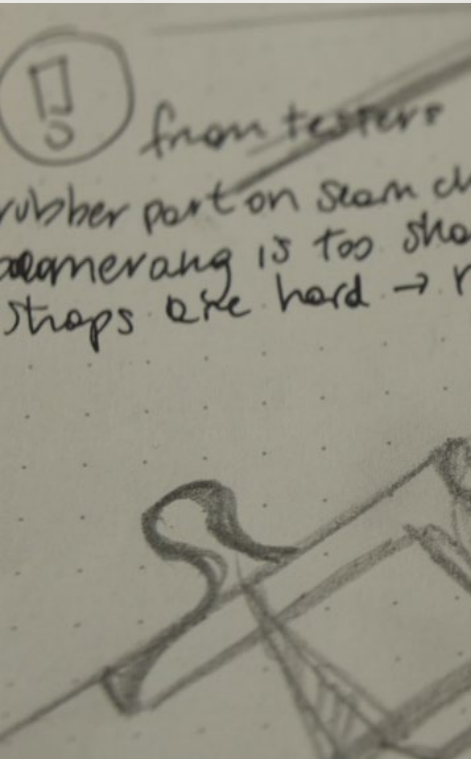 !
from testers
rubber part on seam ch
boomerang is too sho
straps are hard → r